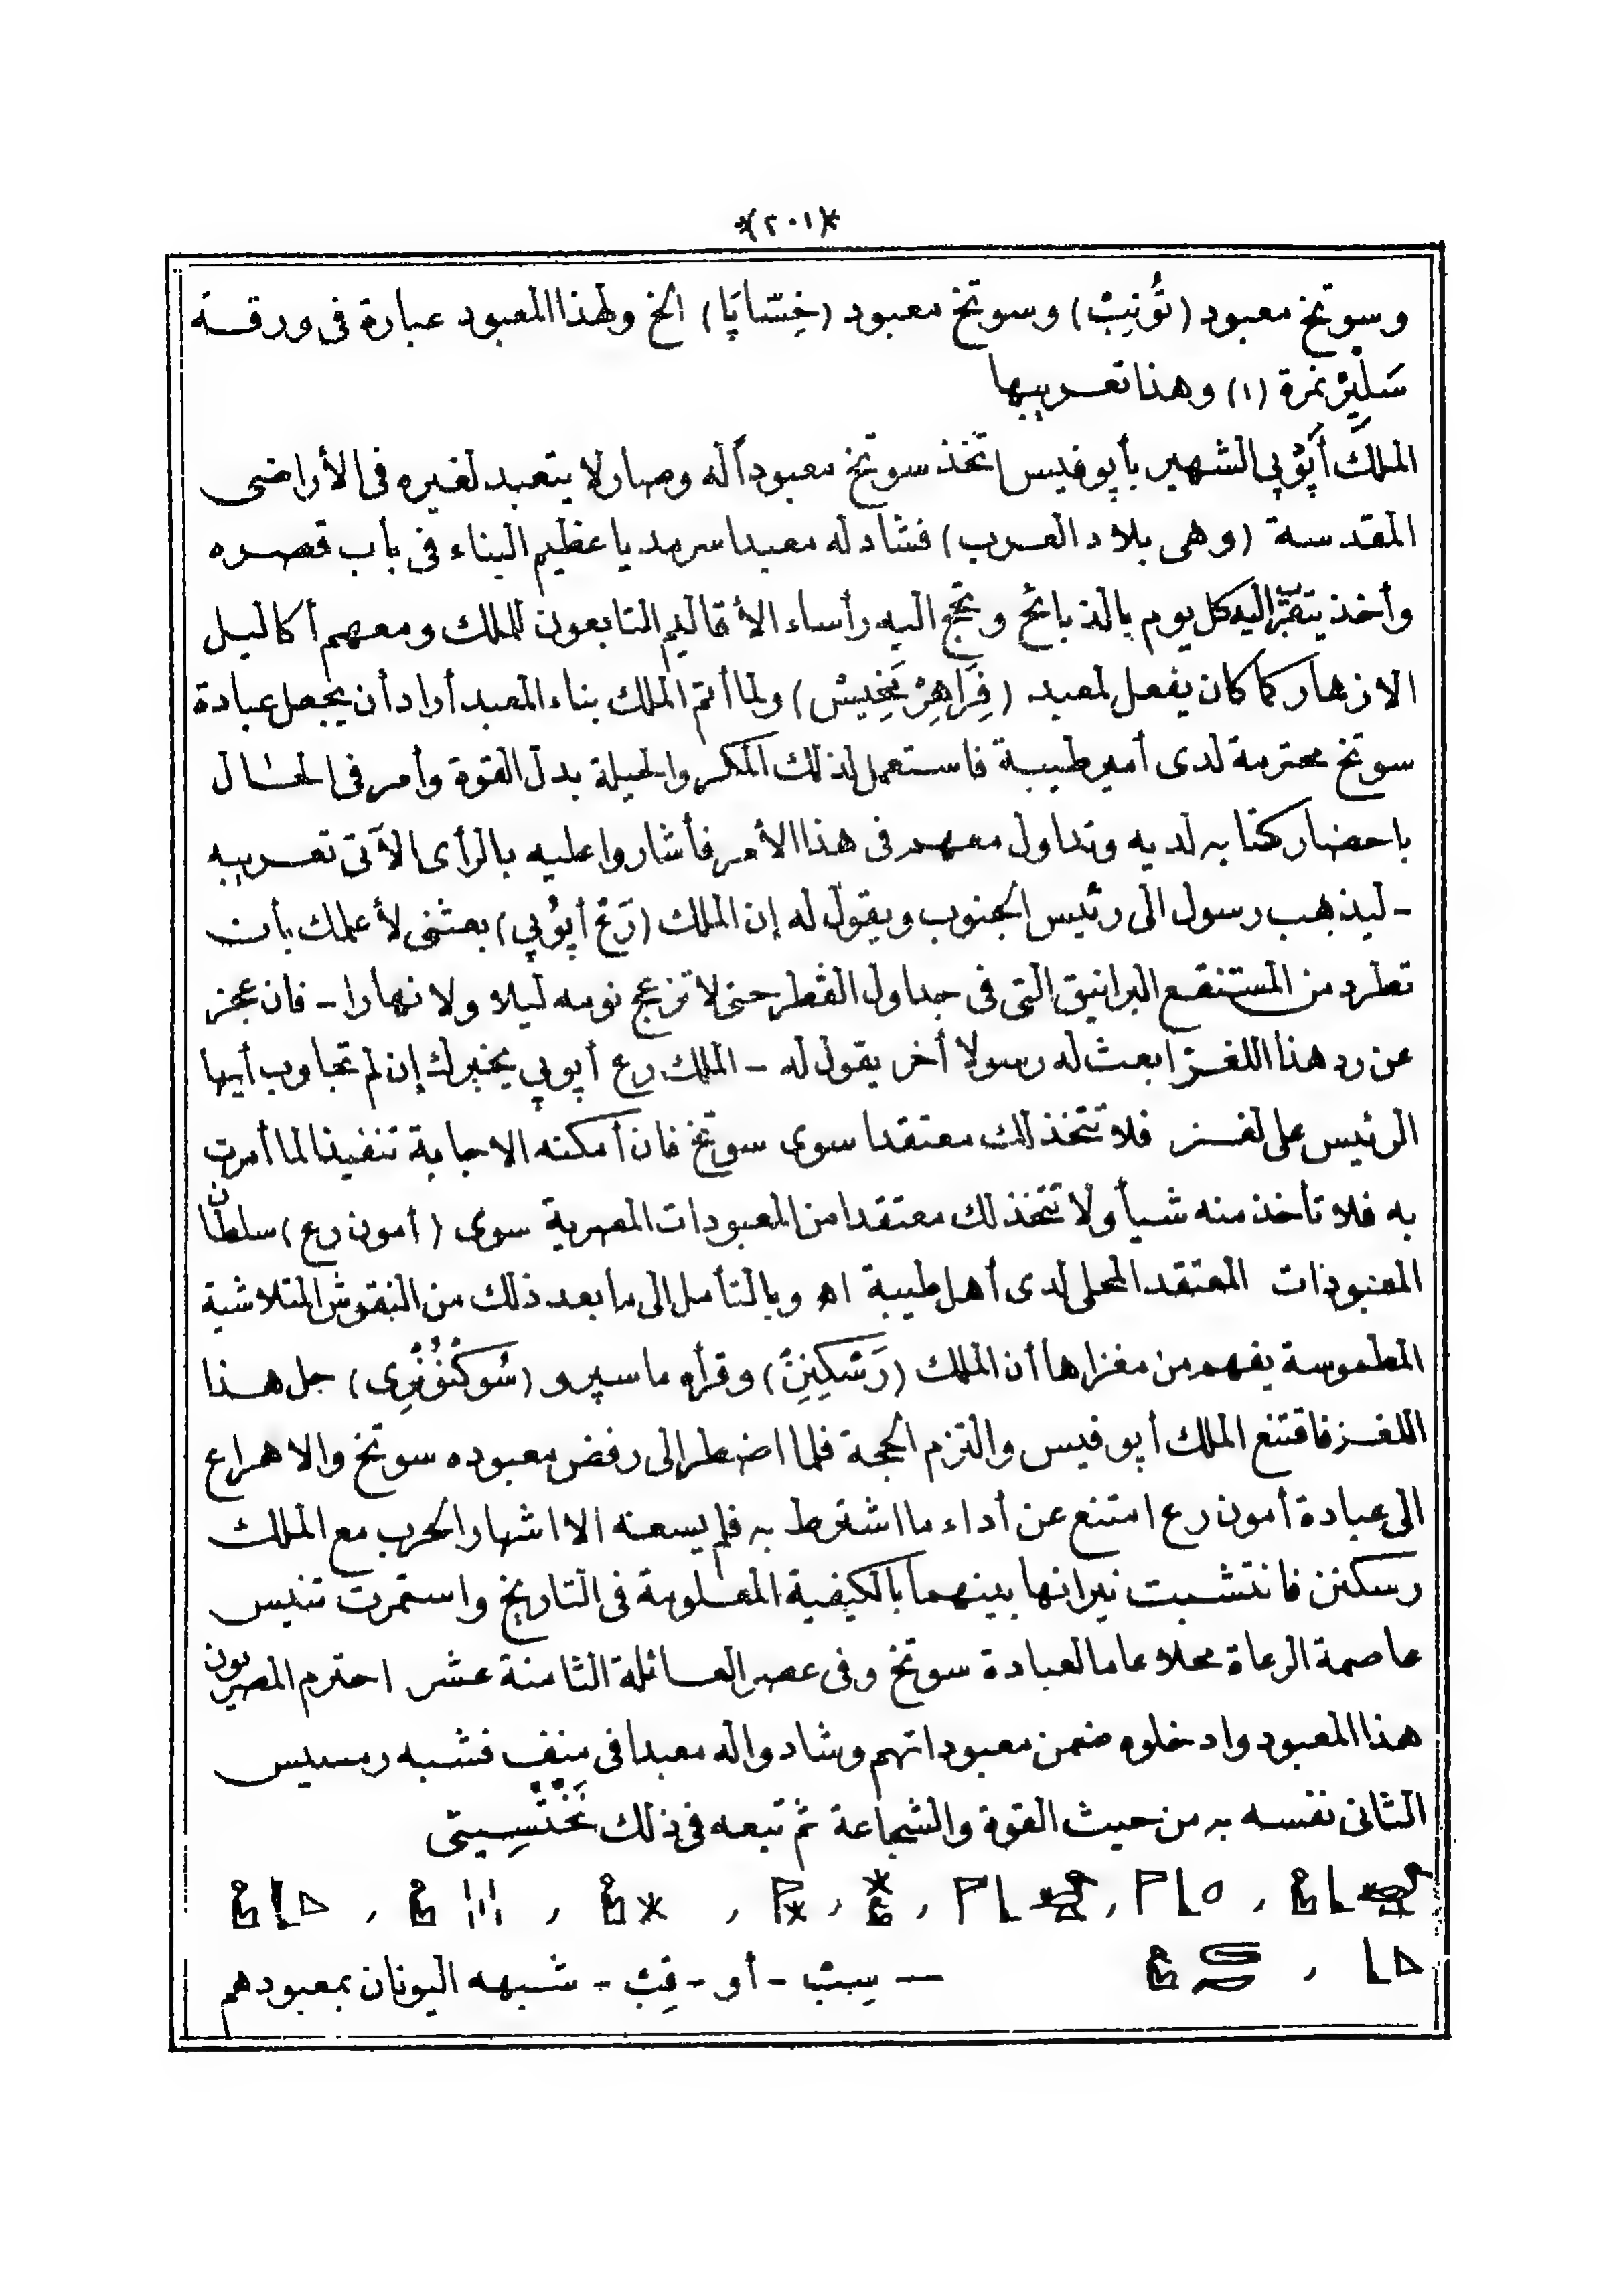 *(٢٠١)*
وسوتخ معبود (تُونِبْ) وسوتخ معبود (خِسَّاپَا) الخ ولهذا المعبود عبارة فى ورقة
سَلِيْرْ نمرة (١) وهذا تعريبها
الملك أَپُوپِى الشهير بأپوفيس اتخذ سوتخ معبوداً له وصار لا يتعبد لغيره فى الأراضى
المقدسة (وهى بلاد العرب) فشاد له معبدا سرمديا عظيم البناء فى باب قصره
وأخذ يتقرّب اليه كل يوم بالذبائح وتحج اليه رأساء الأقاليم التابعون للملك ومعهم أكاليل
الازهار كما كان يفعل لمعبد (فِرَاهِرْ مَخِيسْ) ولما أتم الملك بناء المعبد أراد أن يجعل عبادة
سوتخ محترمة لدى أمير طيبة فاستعمل لذلك المكر والحيلة بدل القوة وأمر فى الحال
باحضار كتابه لديه وتداول معهم فى هذا الأمر فأشاروا عليه بالرأى الآتى تعريبه
- ليذهب رسول الى رئيس الجنوب ويقول له إن الملك (رَعْ أپُوپِى) بعثنى لأعلمك بأن
تطرد من المستنقع البرانيق التى فى جداول القطر حتى لا تزعج نومه ليلا ولا نهارا - فان عجز
عن رد هذا اللغز ابعث له رسولا أخر يقول له - الملك رع أپوپى يخبرك إن لم تجاوب أيها
الرئيس على لغز فلا تتخذ لك معتقدا سوى سوتخ فان أمكنه الاجابة تنفيذا لما أمرت
به فلا تأخذ منه شيأ ولا تتخذ لك معتقدا من المعبودات المصرية سوى (أمون رع) سلطان
المعبودات المعتقد المحلى لدى أهل طيبة اه وبالتأمل الى ما بعد ذلك من النقوش المتلاشية
المطموسة يفهم من مغزاها أن الملك (رَسْكِنِنْ) وقرأه ماسپرو (سُوكْنُونْرِى) حل هذا
اللغز فاقتنع الملك أپوفيس والتزم الحجة فلما اضطر الى رفض معبوده سوتخ والاهراع
الى عبادة أمون رع امتنع عن أداء ما اشترط به فلم يسعه الا اشهار الحرب مع الملك
رسكنن فانتشبت نيرانها بينهما بالكيفية المعلومة فى التاريخ واستمرت تنيس
عاصمة الرعاة محلا عاما لعبادة سوتخ وفى عصر العائلة الثامنة عشر احترم المصريون
هذا المعبود وادخلوه ضمن معبوداتهم وشادوا له معبدا فى منف فشبه رمسيس
الثانى نفسه به من حيث القوة والشجاعة ثم تبعه فى ذلك نَخْتْسِيتى
— سِبْ - أو - قِبْ - شبهه اليونان بمعبودهم